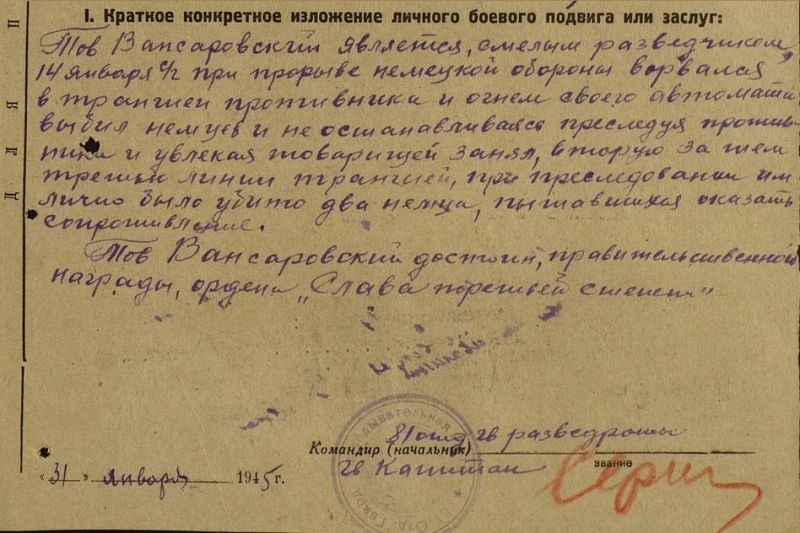 I. Краткое конкретное изложение личного боевого подвига или заслуг:
Тов Вансаровский является, смелым разведчиком,
14 января с/г при прорыве немецкой обороны ворвался
в траншеи противника и огнем своего автомата
выбил немцев и не останавливаясь преследуя против-
ника и увлекая товарищей занял, вторую за тем
третью линии траншей, при преследовании им
лично было убито два немца, пытавшихся оказать
сопротивление.
Тов Вансаровский достоин, правительственной
награды, ордена „Слава третьей степени"
81 отд гв разведроты
Командир (начальник)
гв Капитан
звание
"31" января 1945 г.
Д Л Я П